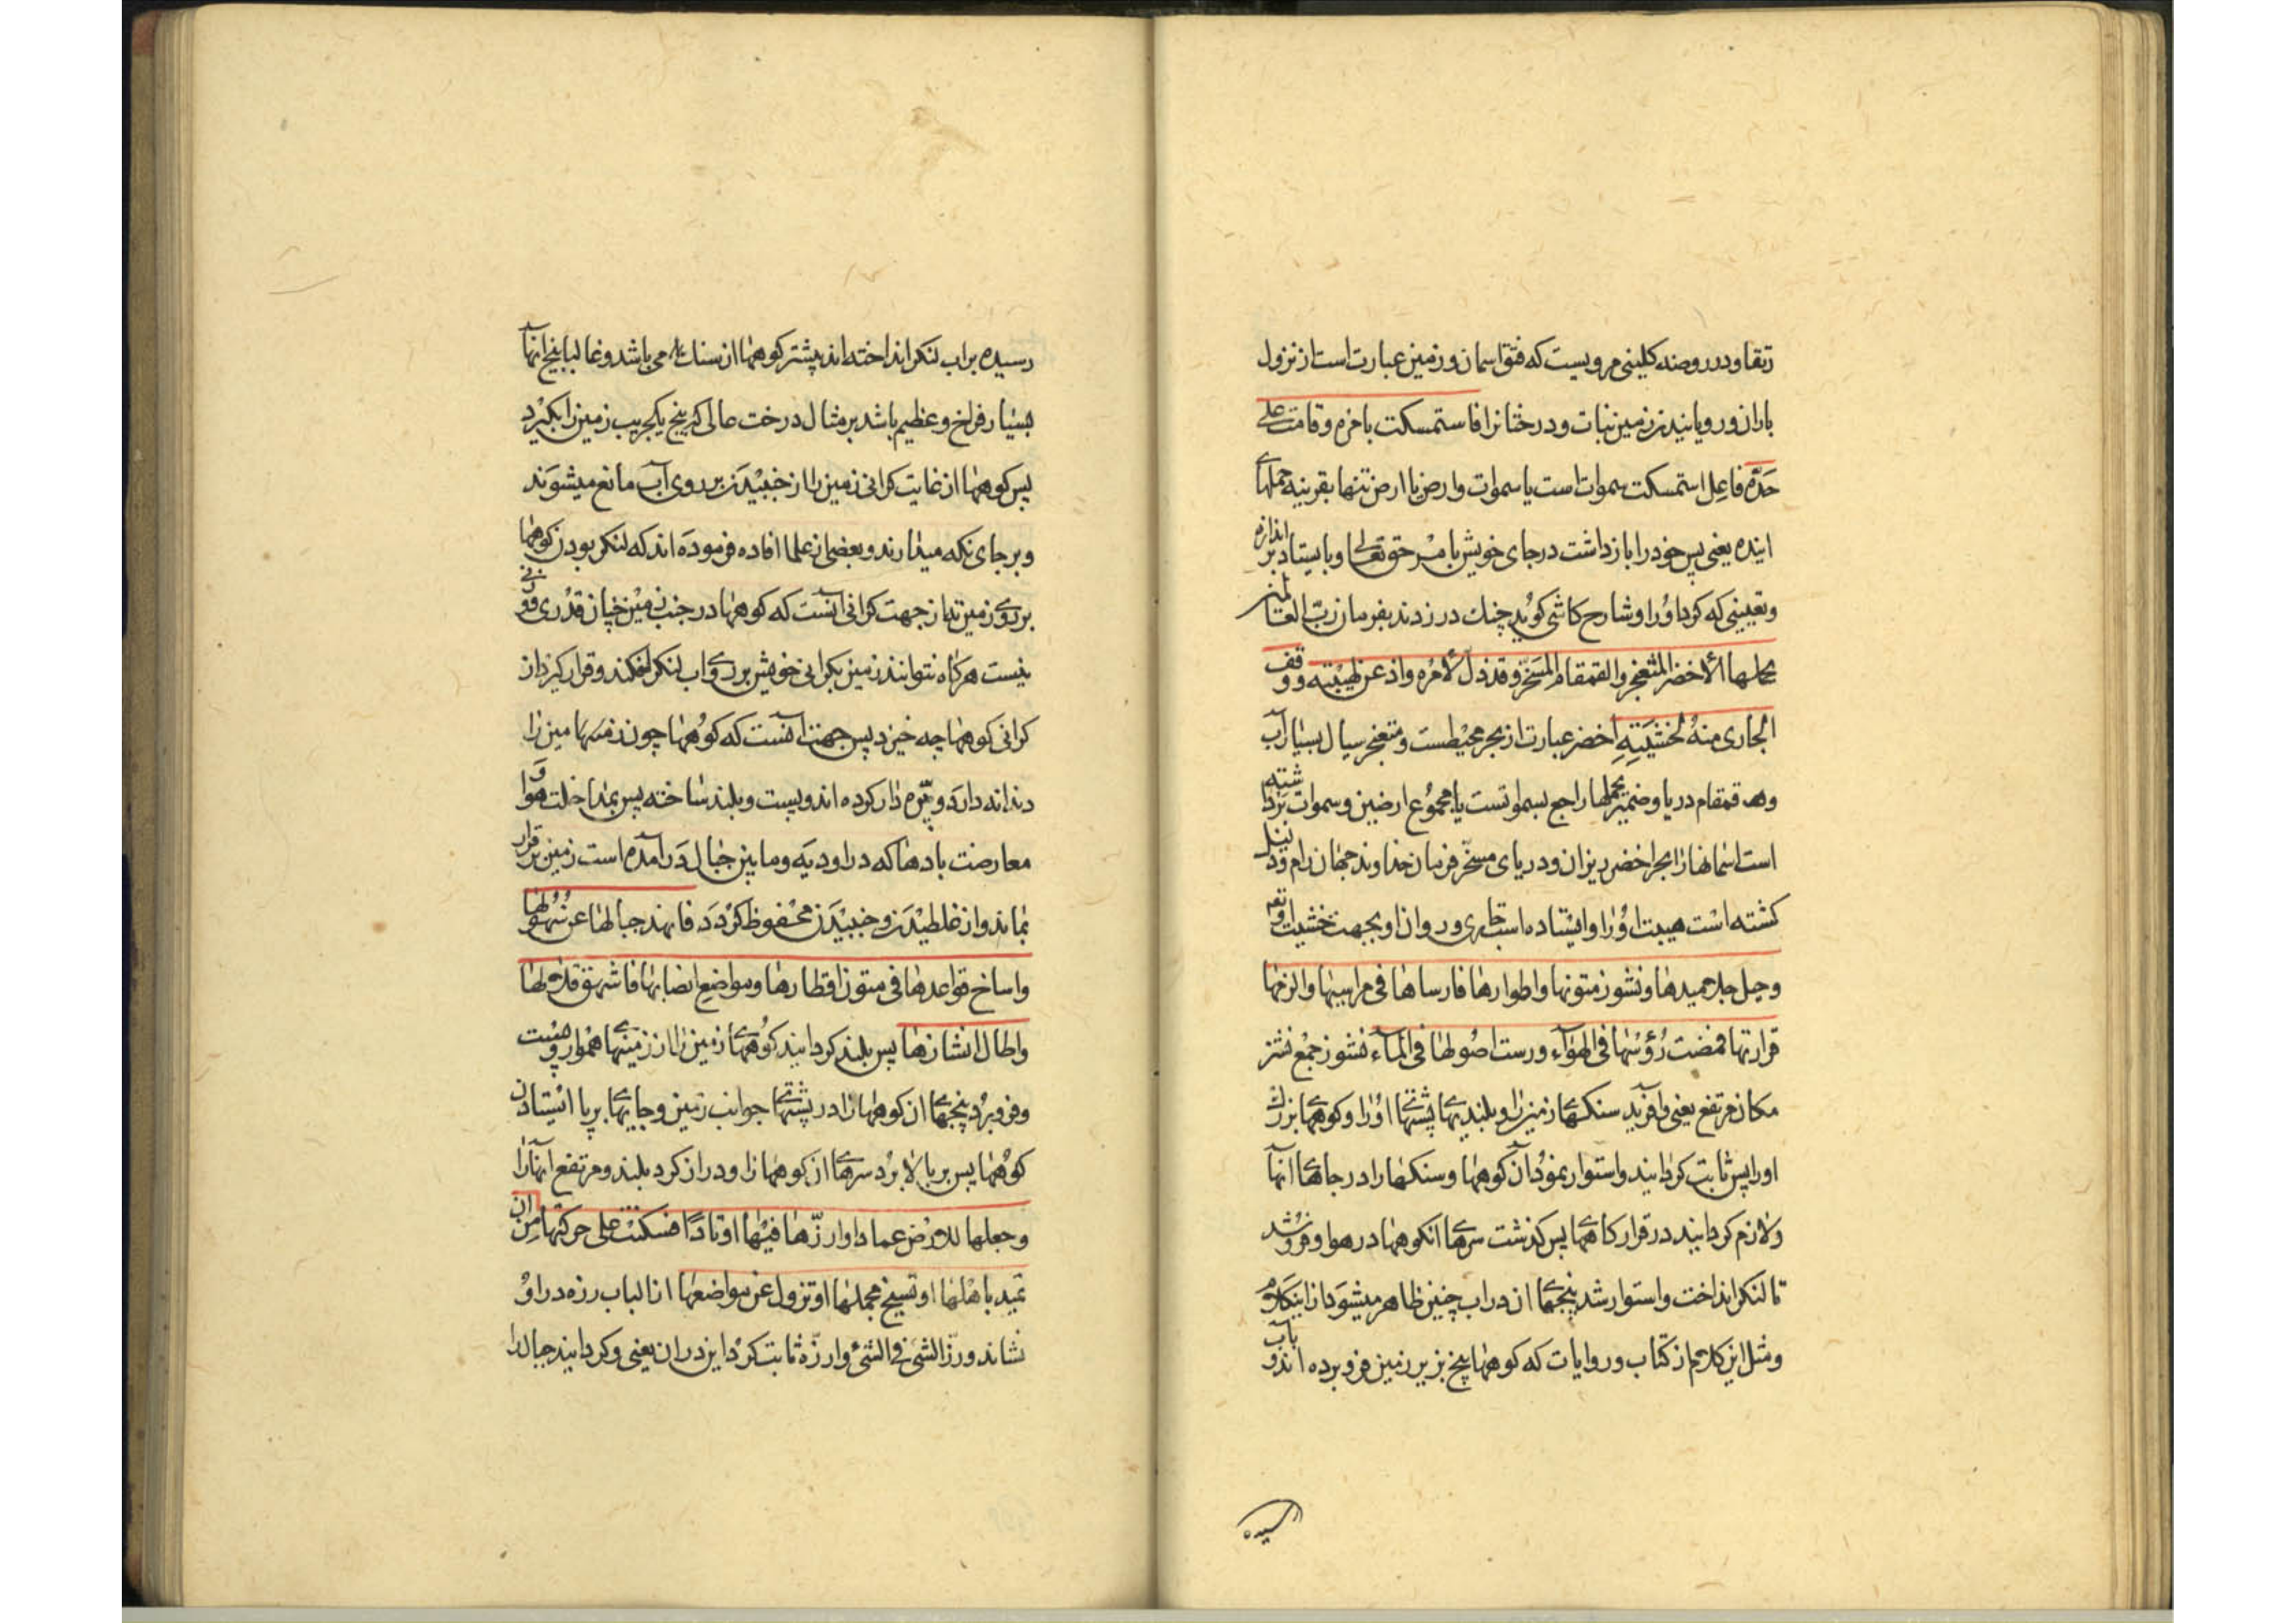 رتقا ودر روضه کلینی مرویست که فتق اسمان و زمین عبارت است از نزول
باران و رویانیدن زمین نبات و درختانرا فاستمسکت بامره وقامت علی
حدّه فاعل استمسکت سموات است یا سموات وارض یا ارض تنها بقرینه جملهای
اینده یعنی پس خود را بازداشت در جای خویش بامر حق تعالی و بایستاد بر اندازه
وتعیینی که کرد اورا وشارح کاشی کوید چنك در زدند بفرمان ربّ العالمین
یحملها الأخضر المثعنجر والقمقام المسخّر وقد ذلّ لأمره واذعن لهیبته ووقف
الجاری منه لخشیته اخضر عبارت از بحر محیطست ومثعنجر سیال بسیار آب
و قمقام دریا وضمیر یحملها راجع بسمواتست یا مجموع ارضین وسموات برداشته
است اسمانها را بحر اخضر ریزان ودریای مسخّر فرمان خداوند جهان رام وذلیل
کشته است هیبت اورا وایستاده است جاری و روان او بجهت خشیت او وقوله
وجبل جلامیدها ونشوز متونها واطوارها فارساها فی مراسیها والزمها
قرارتها فمضت رؤسها فی الهوآء ورست اصولها فی المآء نشوز جمع نشز
مکان مرتفع یعنی وافرید سنکهای زمین را وبلندیهای پشتهای اورا وکوههای بزرك
اورا پس ثابت کردانید واستوار نمود آن کوهها وسنکها را در جاهای انها
ولازم کردانید در قرارکاههای پس کذشت سرهای انکوهها در هوا وفرو شد
تا لنکر انداخت واستوار شد بیخهای ان در اب چنین ظاهر میشود از اینکلام
ومثل این کلام از کتاب وروایات که کوهها بیخ بزیر زمین فرو برده اند وبآب
رسیده
رسیده بر اب لنکر انداخته اند بیشتر کوهها از سنك می باشد وغالبا بیخ انها
بسیار فراخ وعظیم باشد بر مثال درخت عالی که بیخ یکجریب زمین را بکیرد
پس کوهها از غایت کرانی زمین را از جنبیدن بر روی آب مانع میشوند
وبر جای نکه میدارند وبعضی از علما افاده فرموده اند که لنکر بودن کوهها
بر روی زمین نه از جهت کرانی آنست که کوهها در جنب زمین چنان قدری و وزنی
نیست هرکاه نتوانند زمین بکرانی خویش بر روی اب لنکر افکند وقرار کیرد از
کرانی کوهها چه خیزد پس جهت آنست که کوهها چون زمین را
دندانه دار وپرّه دار کرده اند وپست وبلند ساخته پس بمداخلت هوا و
معارضت بادها که در اودیه وما بین جبال در آمده است زمین بر قرار
بماند واز غلطیدن وجنبیدن محفوظ کردد فانهد جبالها عن سهولها
واساخ قواعدها فی متون اقطارها ومواضع انصابها فاشهق قلالها
واطال انشازها پس بلند کردانید کوههای زمین را از زمینهای هموار وپست
وفرو برد بیخهای ان کوهها را در پشتهای جوانب زمین وجایهای برپا ایستادن
کوهها پس بر بالا برد سرهای ان کوهها را ودراز کرد بلند ومرتفع انها را
وجعلها للارض عمادا وارزّها فیها اوتادًا فسکنت علی حرکتها من ان
تمید باهلها او تسیخ بحملها او تزول عن مواضعها ازالباب رزه در او
نشاند ورزّ الشئ فی الشئ وارزّه ثابت کردانید در ان یعنی وکردانید جبال را